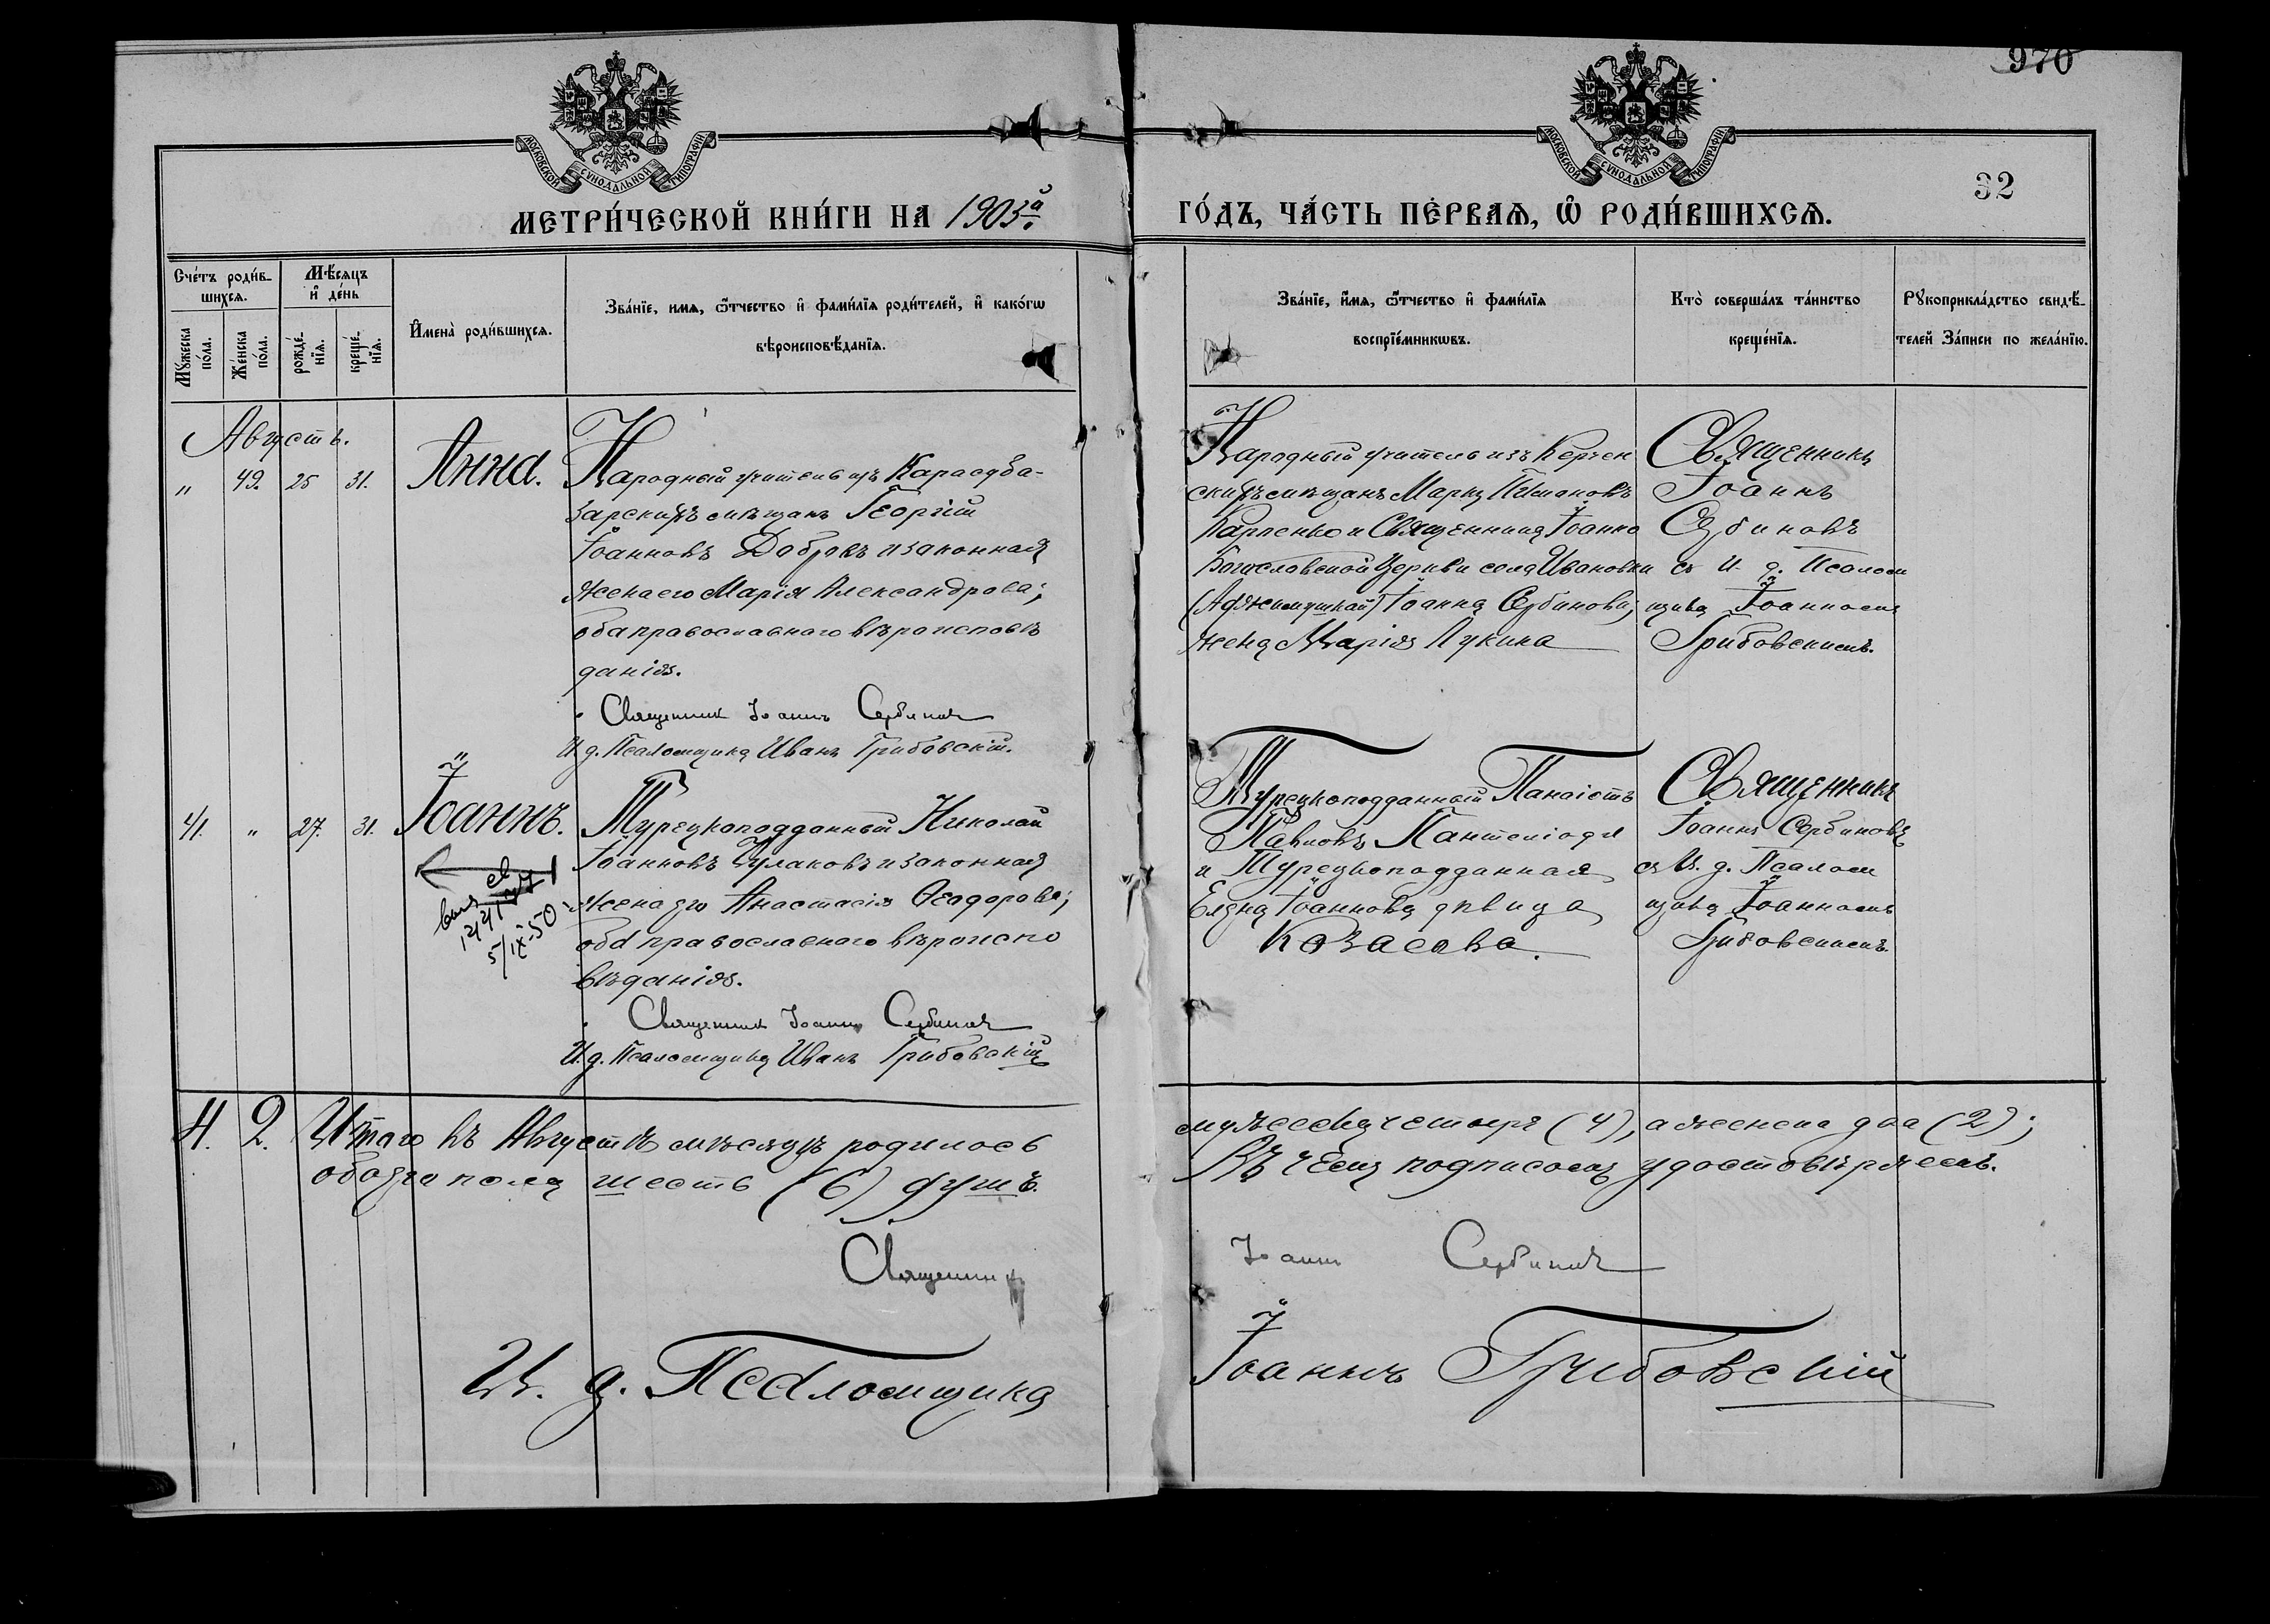 970
МОСКОВСКОЙ СѴНОДАЛЬНОЙ ТИПОГРАФІИ
МОСКОВСКОЙ СѴНОДАЛЬНОЙ ТИПОГРАФІИ
32
МЕТРИ́ЧЕСКОЙ КНИ́ГИ НА 1903й
ГО́ДЪ, ЧА́СТЬ ПЕ́РВАѦ, Ѽ РОДИ́ВШИХСѦ.
Сче́тъ роди́в-
шихсѧ.
Мѣ́сѧцъ
и҆ де́нь
Мꙋ́жеска
по́ла.
Же́нска
по́ла.
рожде́-
нїѧ.
креще́-
нїѧ.
И҆мена̀ роди́вшихсѧ.
Зва́нїе, имѧ, ѻ҆́тчество и҆ фами́лїѧ роди́телей, и҆ како́гѡ
вѣроисповѣ́данїѧ.
Зва́нїе, и҆́мѧ, ѻ҆́тчество и҆ фами́лїѧ
воспрїе́мникѡвъ.
Кто̀ соверша́лъ та́инство
креще́нїѧ.
Рꙋкоприкла́дство свидѣ́-
телей За́писи по жела́нїю.
Августъ.
„ 49. 25 31. Анна.
Народный учитель изъ Карасуба-
зарскихъ мѣщанъ Георгій
Іоанновъ Добровъ и законная
жена его Марія Александрова;
оба православнаго вѣроисповѣ
данія.
Священник Іоаннъ Сербинов
И. д. Псаломщика Иванъ Грибовскій.
Народный учитель изъ Керчен
скихъ мѣщанъ Маркъ
Карпенко и Священника Іоанно
Богословской Церкви села Ивановки
Іоанна Сербинова,
жена Марія Лукина
Священникъ
Іоаннъ
Сербиновъ
съ И. д. Псалом
щика Іоанномъ
Грибовскимъ.
41. „ 27. 31. Іоаннъ.
5/IX-50
Турецкоподданный Николай
Іоанновъ Чулаковъ и законная
жена его Анастасія Ѳеодорова;
оба православнаго вѣроиспо
вѣданія.
Священник Іоаннъ Сербинов
И. д. Псаломщика Иванъ Грибовскій
Турецкоподданный Панаіотъ
Павловъ Пантеліоди
и Турецкоподданная
Елена Іоаннова дѣвица
Козасова.
Священникъ
Іоаннъ Сербиновъ
съ И. д. Псалом
щика Іоанномъ
Грибовскимъ.
4. 2. Итого въ Августѣ мѣсяцѣ родилось
обоего пола шесть (6) душъ.
мужеска четыре (4), а женска два (2);
Въ чемъ подписомъ удостовѣряемъ.
Священник
Іоанн Сербинов
И. д. Псаломщика
Іоаннъ Грибовскій